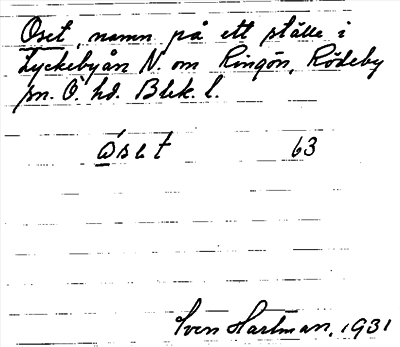 Oset, namn på ett ställe i
Lyckebyån N. om Ringön, Rödeby
sn. Ö. hd. Blek. l.
óset 63
Sven Hartman, 1931